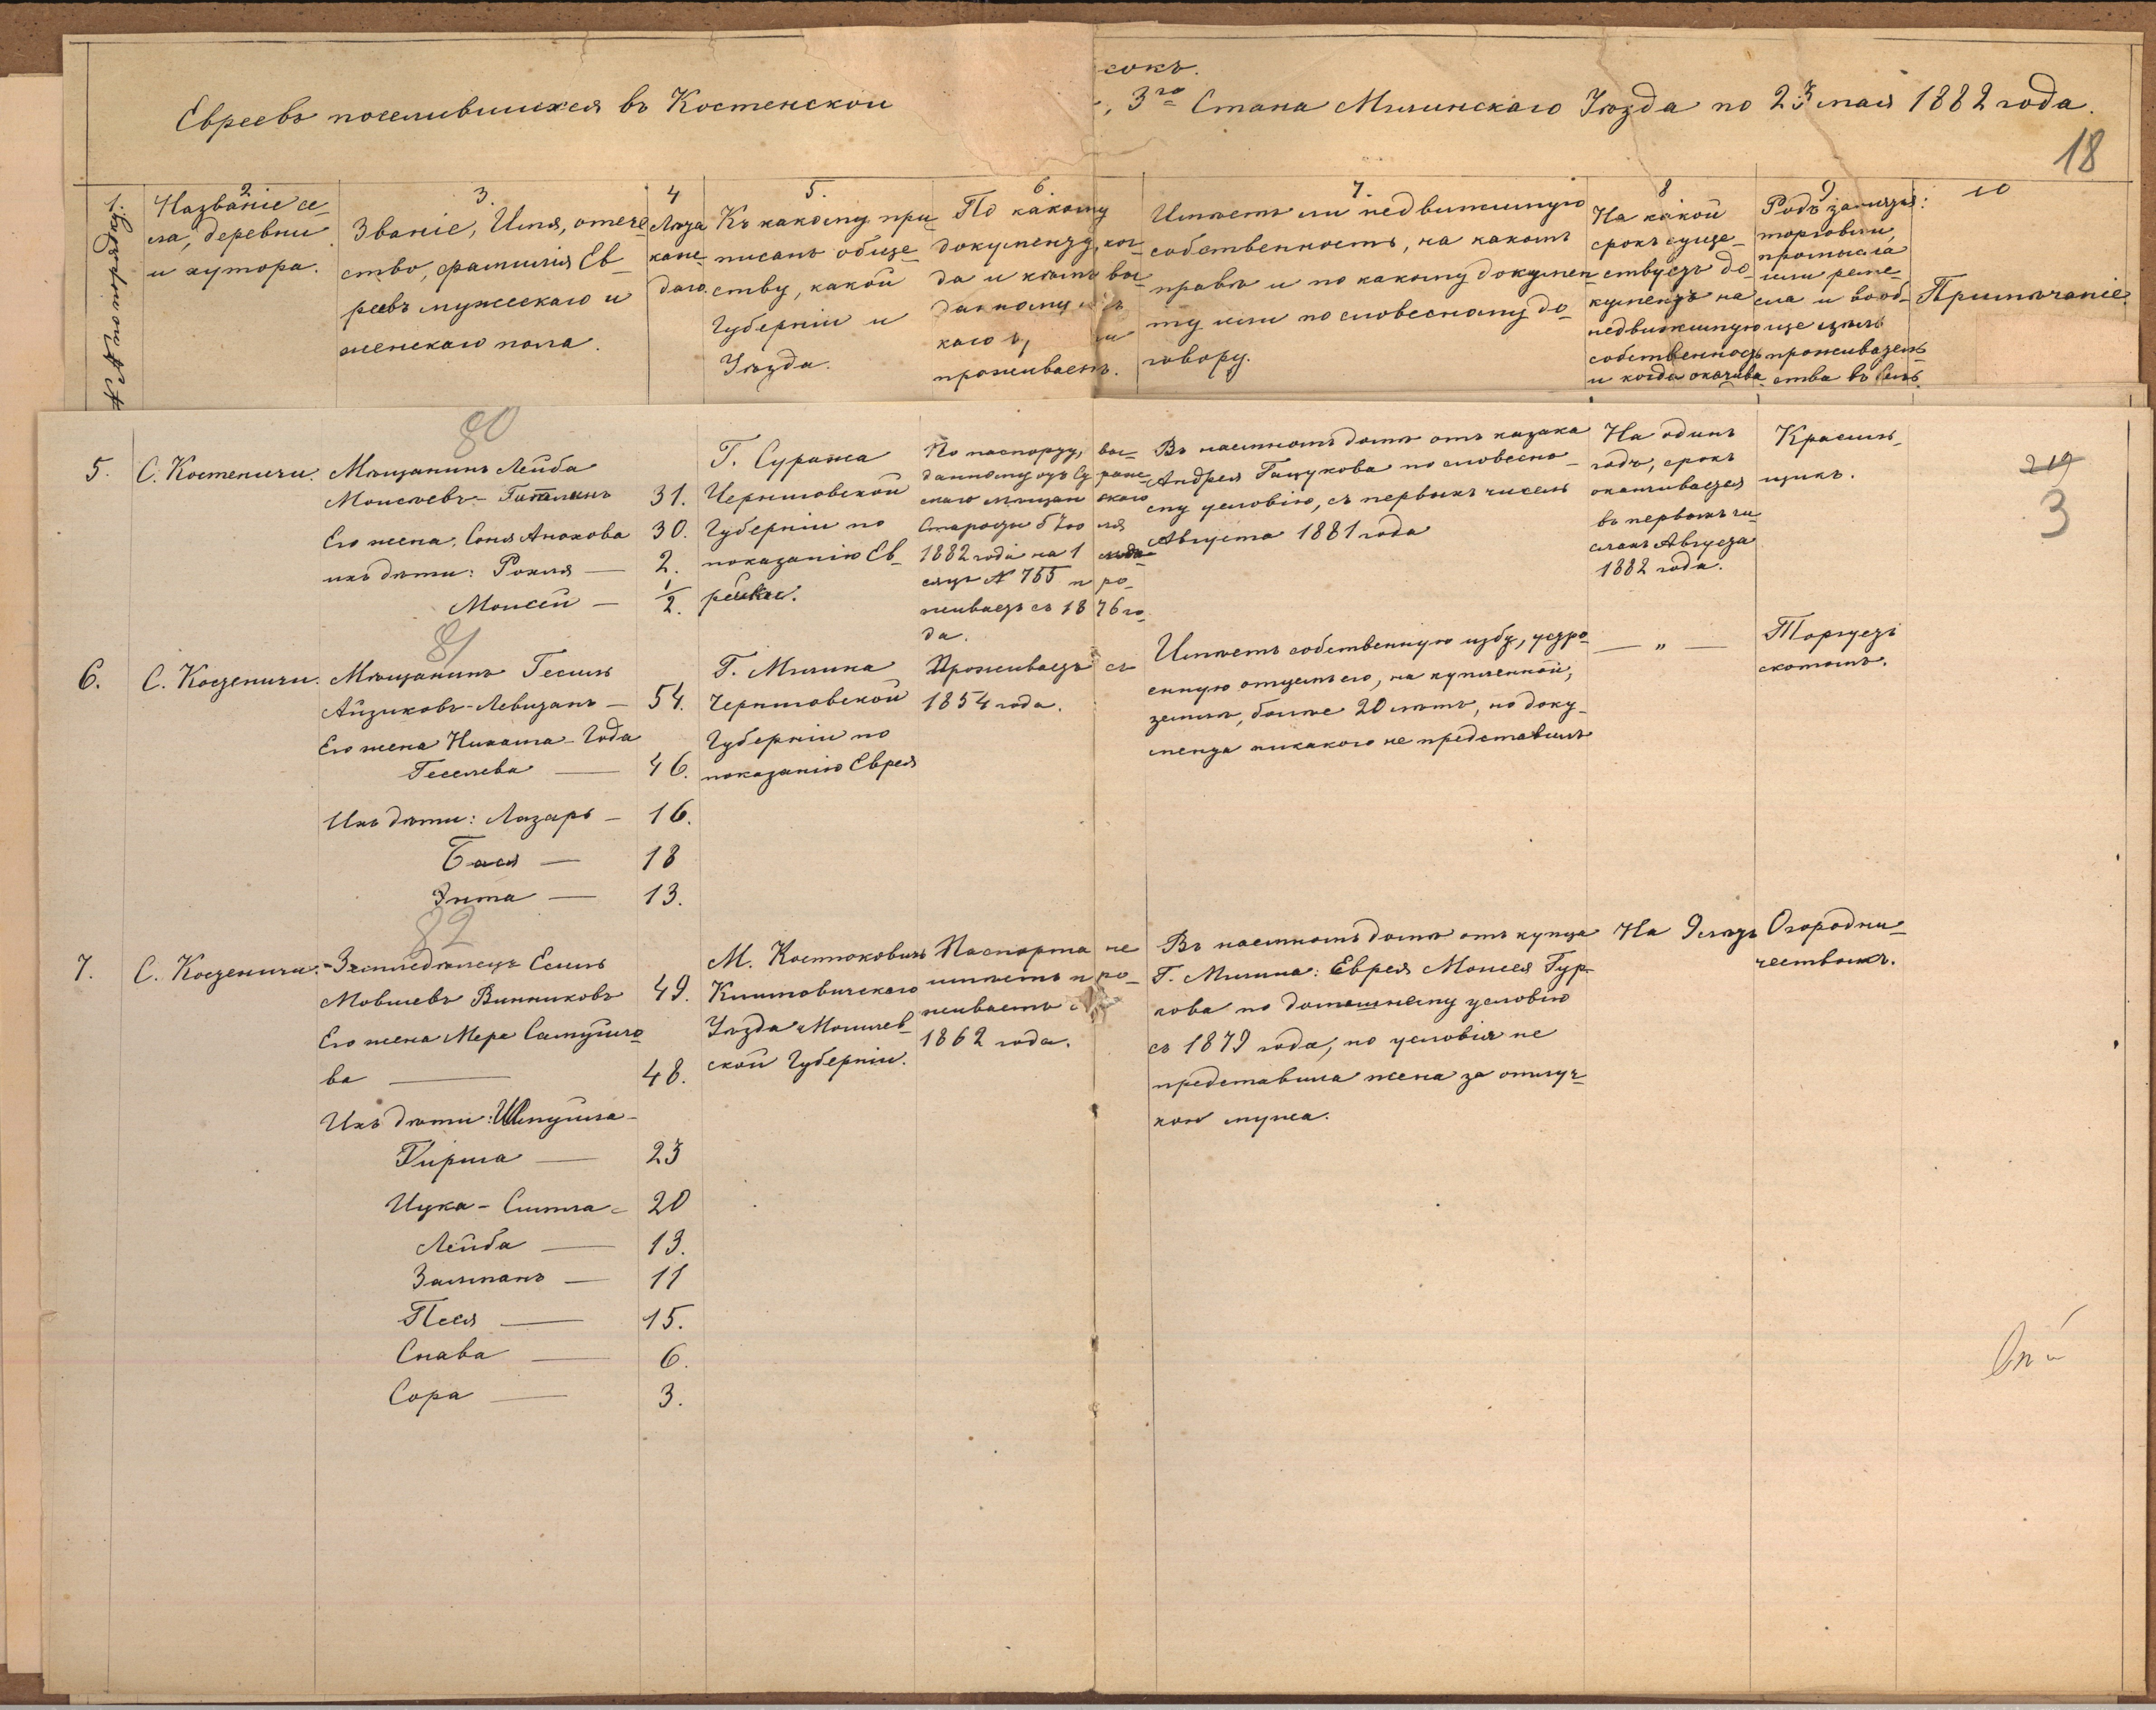 сокъ.
Евреевъ поселившихся въ Костенской
3го Стана Мглинскаго Уѣзда по 23 мая 1882 года.
18
1.
№ по порядку.
2.
Названіе се-
ла, деревни
и хутора.
3.
Званіе, Имя, отече-
ство, фамилія Ев-
реевъ мужескаго и
женскаго пола.
4
Лѣта
каж-
даго.
5.
Къ какому при-
писанъ обще-
ству, какой
Губерніи и
Уѣзда.
6.
По какому
документу, ког-
да и кѣмъ вы-
данному
каго
проживаетъ.
7.
Имѣетъ ли недвижимую
собственность, на какомъ
правѣ и по какому докумен-
ту или по словесному до-
говору.
8
На какой
срокъ суще-
ствуетъ до-
кументъ на
недвижимую
собственность
и когда оканчива
9
Родъ занятія:
торговли,
промысла
или реме-
сла и вооб-
ще цѣль
проживатель-
ства въ селѣ.
10
Примѣчаніе.
80
5.
С. Костеничи.
Мѣщанинъ Лейба
Моисеевъ-
31.
Его жена, Соня Аронова 30.
ихъ дѣти: Рохля — 2.
Моисей — 1/2.
Г. Суража
Черниговской
Губерніи по
показанію Ев-
рейки.
По паспорту, вы-
данному отъ Су раж-
скаго мѣщан скаго
Старосты 5 Iю ля
1882 года на 1
сяцъ № 755 п ро-
живаетъ съ 18 76 го-
да.
Въ наемномъ домѣ отъ казака
Андрея Гацукова по словесно-
му условію, съ первыхъ чиселъ
Августа 1881 года
На одинъ
годъ, срокъ
оканчивается
въ первыхъ чи-
слахъ Августа
1882 года.
Красиль-
щикъ.
219
3
81
6.
С. Костеничи.
Мѣщанинъ Гесель
Айзиковъ-Левитанъ — 54.
Его жена Нихама-Года
Геселева — 46.
Ихъ дѣти: Лазарь — 16.
Бася — 18
Энта — 13.
Г. Мглина
Черниговской
Губерніи по
показанію Еврея
Проживаетъ съ
1854 года.
Имѣетъ собственную избу, устро-
енную отцемъ его, на купленной,
землѣ, болѣе 20 лѣтъ, но доку-
мента никакого не представилъ
— „ —
Торгуетъ
скотомъ.
82
7.
С. Костеничи.
Земледѣлецъ Есель
Мовшевъ Винниковъ 49.
Его жена Мера Самуило-
ва — 48.
Ихъ дѣти: Шмуйла-
Гирша — 23
Цука-Симла - 20
Лейба — 13.
Залманъ — 11
Песя — 15.
Слава — 6.
Сора — 3.
М. Костюковичъ
Климовичскаго
Уѣзда Могилев-
ской Губерніи.
Паспорта не
имѣетъ п ро-
живаетъ с
1862 года.
Въ наемномъ домѣ отъ купца
Г. Мглина: Еврея Моисея Гур-
кова по домашнему условію
съ 1879 года, но условія не
представила жена за отлуч-
кой мужа.
На 9 лѣтъ
Огородни-
чествомъ.